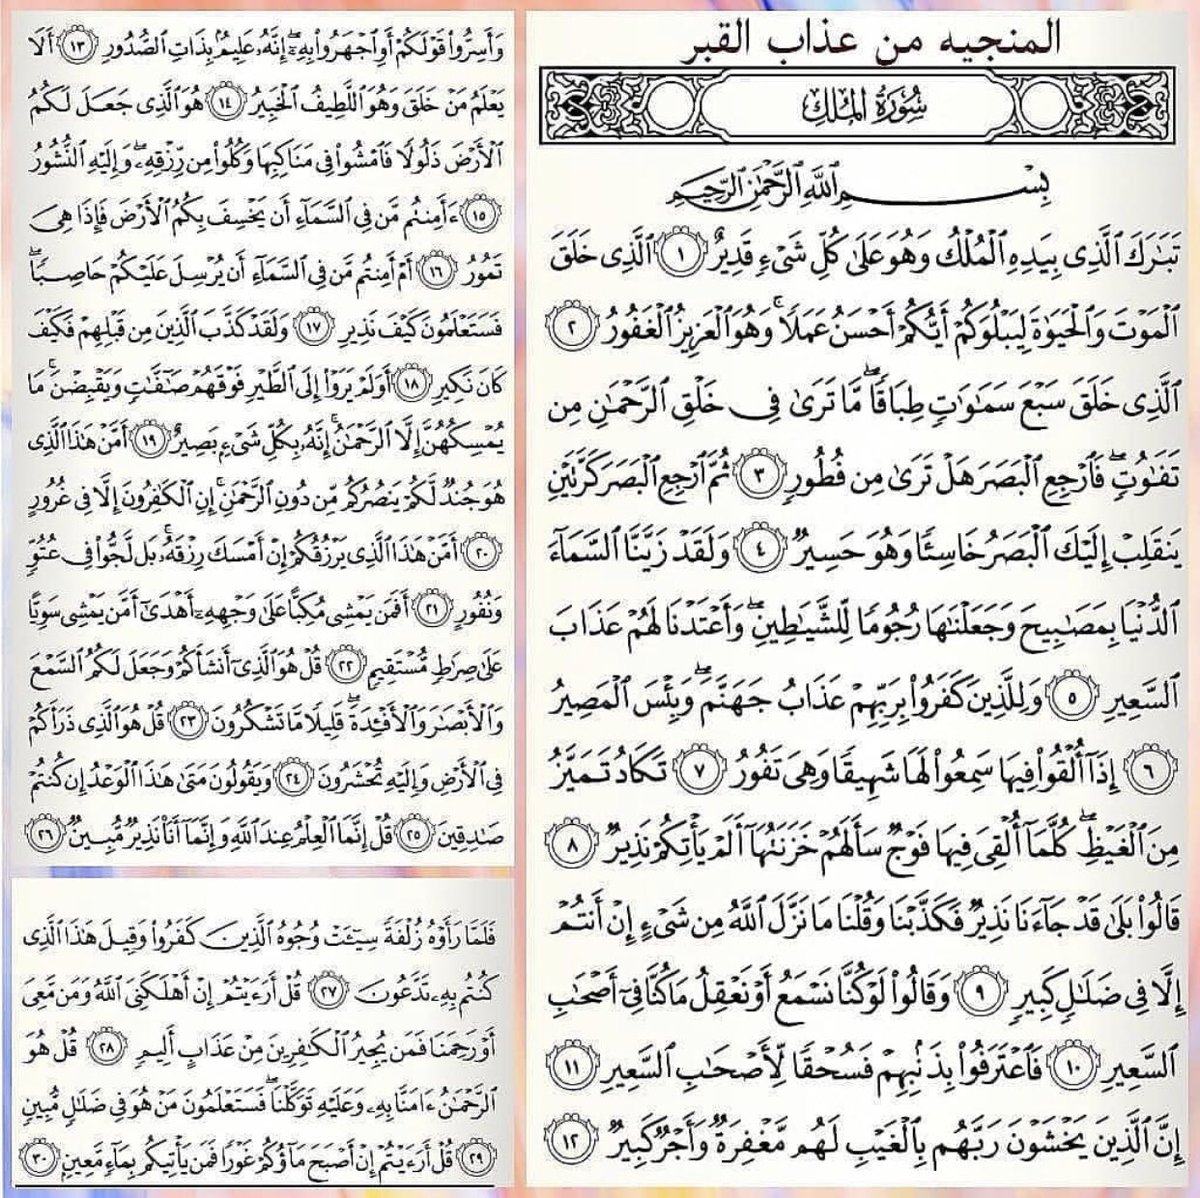 المنجيه من عذاب القبر
سُورَةُ المُلْكِ
بِسْمِ ٱللَّهِ ٱلرَّحْمَٰنِ ٱلرَّحِيمِ
تَبَٰرَكَ ٱلَّذِى بِيَدِهِ ٱلْمُلْكُ وَهُوَ عَلَىٰ كُلِّ شَىْءٍ قَدِيرٌ ١ ٱلَّذِى خَلَقَ
ٱلْمَوْتَ وَٱلْحَيَوٰةَ لِيَبْلُوَكُمْ أَيُّكُمْ أَحْسَنُ عَمَلًا ۚ وَهُوَ ٱلْعَزِيزُ ٱلْغَفُورُ ٢
ٱلَّذِى خَلَقَ سَبْعَ سَمَٰوَٰتٍ طِبَاقًا ۖ مَّا تَرَىٰ فِى خَلْقِ ٱلرَّحْمَٰنِ مِن
تَفَٰوُتٍ ۖ فَٱرْجِعِ ٱلْبَصَرَ هَلْ تَرَىٰ مِن فُطُورٍ ٣ ثُمَّ ٱرْجِعِ ٱلْبَصَرَ كَرَّتَيْنِ
يَنقَلِبْ إِلَيْكَ ٱلْبَصَرُ خَاسِئًا وَهُوَ حَسِيرٌ ٤ وَلَقَدْ زَيَّنَّا ٱلسَّمَآءَ
ٱلدُّنْيَا بِمَصَٰبِيحَ وَجَعَلْنَٰهَا رُجُومًا لِّلشَّيَٰطِينِ ۖ وَأَعْتَدْنَا لَهُمْ عَذَابَ
ٱلسَّعِيرِ ٥ وَلِلَّذِينَ كَفَرُوا۟ بِرَبِّهِمْ عَذَابُ جَهَنَّمَ ۖ وَبِئْسَ ٱلْمَصِيرُ
٦ إِذَآ أُلْقُوا۟ فِيهَا سَمِعُوا۟ لَهَا شَهِيقًا وَهِىَ تَفُورُ ٧ تَكَادُ تَمَيَّزُ
مِنَ ٱلْغَيْظِ ۖ كُلَّمَآ أُلْقِىَ فِيهَا فَوْجٌ سَأَلَهُمْ خَزَنَتُهَآ أَلَمْ يَأْتِكُمْ نَذِيرٌ ٨
قَالُوا۟ بَلَىٰ قَدْ جَآءَنَا نَذِيرٌ فَكَذَّبْنَا وَقُلْنَا مَا نَزَّلَ ٱللَّهُ مِن شَىْءٍ إِنْ أَنتُمْ
إِلَّا فِى ضَلَٰلٍ كَبِيرٍ ٩ وَقَالُوا۟ لَوْ كُنَّا نَسْمَعُ أَوْ نَعْقِلُ مَا كُنَّا فِىٓ أَصْحَٰبِ
ٱلسَّعِيرِ ١٠ فَٱعْتَرَفُوا۟ بِذَنۢبِهِمْ فَسُحْقًا لِّأَصْحَٰبِ ٱلسَّعِيرِ ١١
إِنَّ ٱلَّذِينَ يَخْشَوْنَ رَبَّهُم بِٱلْغَيْبِ لَهُم مَّغْفِرَةٌ وَأَجْرٌ كَبِيرٌ ١٢
وَأَسِرُّوا۟ قَوْلَكُمْ أَوِ ٱجْهَرُوا۟ بِهِۦٓ ۖ إِنَّهُۥ عَلِيمٌۢ بِذَاتِ ٱلصُّدُورِ ١٣ أَلَا
يَعْلَمُ مَنْ خَلَقَ وَهُوَ ٱللَّطِيفُ ٱلْخَبِيرُ ١٤ هُوَ ٱلَّذِى جَعَلَ لَكُمُ
ٱلْأَرْضَ ذَلُولًا فَٱمْشُوا۟ فِى مَنَاكِبِهَا وَكُلُوا۟ مِن رِّزْقِهِۦ ۖ وَإِلَيْهِ ٱلنُّشُورُ
١٥ ءَأَمِنتُم مَّن فِى ٱلسَّمَآءِ أَن يَخْسِفَ بِكُمُ ٱلْأَرْضَ فَإِذَا هِىَ
تَمُورُ ١٦ أَمْ أَمِنتُم مَّن فِى ٱلسَّمَآءِ أَن يُرْسِلَ عَلَيْكُمْ حَاصِبًا ۖ
فَسَتَعْلَمُونَ كَيْفَ نَذِيرِ ١٧ وَلَقَدْ كَذَّبَ ٱلَّذِينَ مِن قَبْلِهِمْ فَكَيْفَ
كَانَ نَكِيرِ ١٨ أَوَلَمْ يَرَوْا۟ إِلَى ٱلطَّيْرِ فَوْقَهُمْ صَٰٓفَّٰتٍ وَيَقْبِضْنَ ۚ مَا
يُمْسِكُهُنَّ إِلَّا ٱلرَّحْمَٰنُ ۚ إِنَّهُۥ بِكُلِّ شَىْءٍۭ بَصِيرٌ ١٩ أَمَّنْ هَٰذَا ٱلَّذِى
هُوَ جُندٌ لَّكُمْ يَنصُرُكُم مِّن دُونِ ٱلرَّحْمَٰنِ ۚ إِنِ ٱلْكَٰفِرُونَ إِلَّا فِى غُرُورٍ
٢٠ أَمَّنْ هَٰذَا ٱلَّذِى يَرْزُقُكُمْ إِنْ أَمْسَكَ رِزْقَهُۥ ۚ بَل لَّجُّوا۟ فِى عُتُوٍّ
وَنُفُورٍ ٢١ أَفَمَن يَمْشِى مُكِبًّا عَلَىٰ وَجْهِهِۦٓ أَهْدَىٰٓ أَمَّن يَمْشِى سَوِيًّا
عَلَىٰ صِرَٰطٍ مُّسْتَقِيمٍ ٢٢ قُلْ هُوَ ٱلَّذِىٓ أَنشَأَكُمْ وَجَعَلَ لَكُمُ ٱلسَّمْعَ
وَٱلْأَبْصَٰرَ وَٱلْأَفْـِٔدَةَ ۖ قَلِيلًا مَّا تَشْكُرُونَ ٢٣ قُلْ هُوَ ٱلَّذِى ذَرَأَكُمْ
فِى ٱلْأَرْضِ وَإِلَيْهِ تُحْشَرُونَ ٢٤ وَيَقُولُونَ مَتَىٰ هَٰذَا ٱلْوَعْدُ إِن كُنتُمْ
صَٰدِقِينَ ٢٥ قُلْ إِنَّمَا ٱلْعِلْمُ عِندَ ٱللَّهِ وَإِنَّمَآ أَنَا۠ نَذِيرٌ مُّبِينٌ ٢٦
فَلَمَّا رَأَوْهُ زُلْفَةً سِيٓـَٔتْ وُجُوهُ ٱلَّذِينَ كَفَرُوا۟ وَقِيلَ هَٰذَا ٱلَّذِى
كُنتُم بِهِۦ تَدَّعُونَ ٢٧ قُلْ أَرَءَيْتُمْ إِنْ أَهْلَكَنِىَ ٱللَّهُ وَمَن مَّعِىَ
أَوْ رَحِمَنَا فَمَن يُجِيرُ ٱلْكَٰفِرِينَ مِنْ عَذَابٍ أَلِيمٍ ٢٨ قُلْ هُوَ
ٱلرَّحْمَٰنُ ءَامَنَّا بِهِۦ وَعَلَيْهِ تَوَكَّلْنَا ۖ فَسَتَعْلَمُونَ مَنْ هُوَ فِى ضَلَٰلٍ مُّبِينٍ
٢٩ قُلْ أَرَءَيْتُمْ إِنْ أَصْبَحَ مَآؤُكُمْ غَوْرًا فَمَن يَأْتِيكُم بِمَآءٍ مَّعِينٍۭ ٣٠